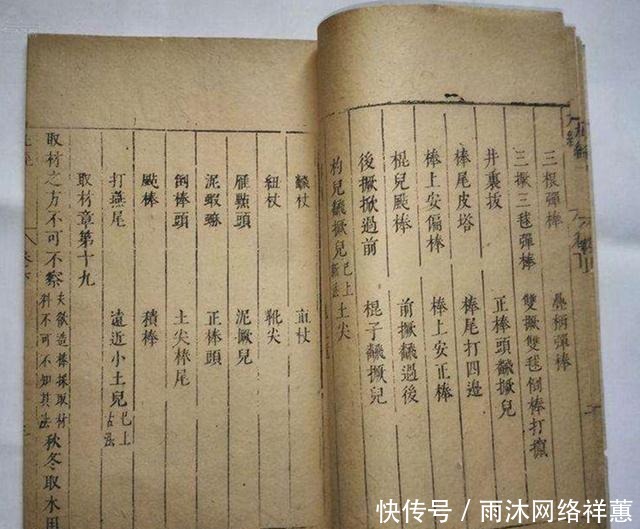 三根彈棒 柄彈棒
三撅三毬彈棒 雙撅雙毬倒棒打
井裏拔 正棒頭飜撅兒
棒尾皮塔 棒尾打四邊
棒上安偏棒 棒上安正棒
棍兒颩棒 前撅飜過後
後撅撅過前 棍子飜撅兒
杓兒飜撅兒 已上新法 土尖
飜杖 杖
紐杖 靴尖
雁點頭 泥撅兒
泥蝦蟆 正棒頭
倒棒頭 土尖棒尾
颩棒 積棒
打燕尾 遠近小土兒 已上古法
取材章第十九
取材之方不可不察 夫欲造棒採取材料不可不知其法 秋冬取木用
快传号/雨沐网络祥蕙